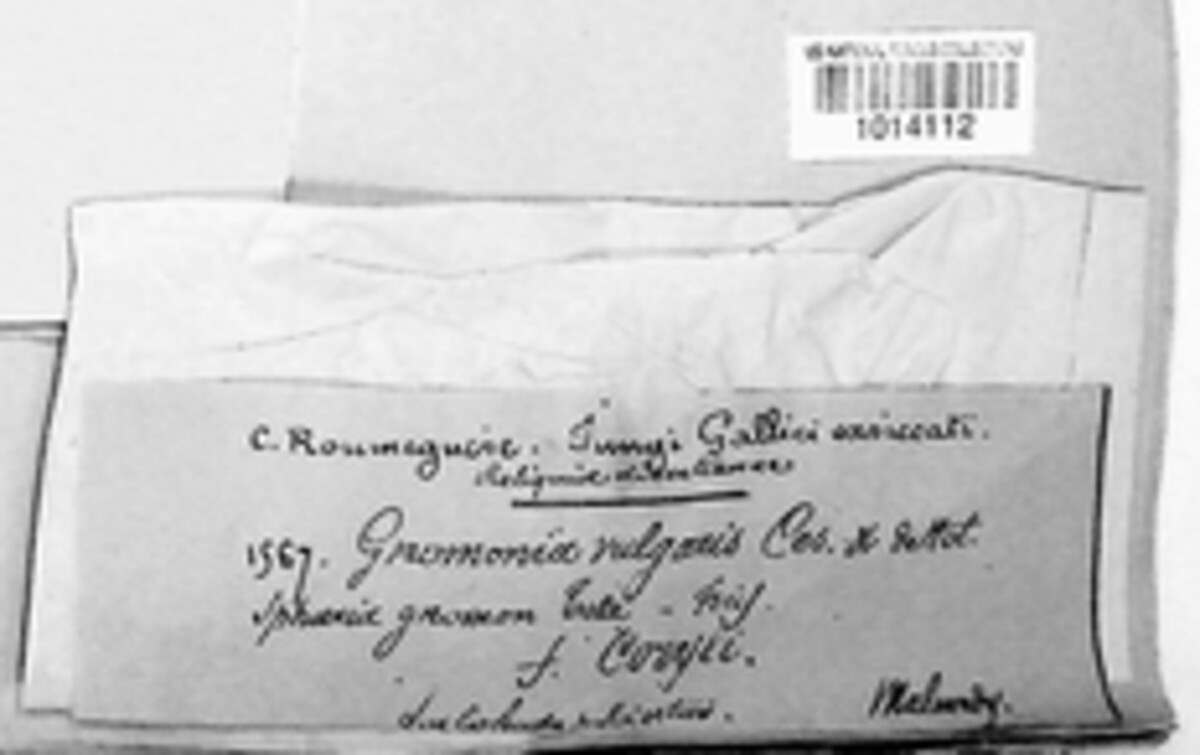 1014112
C. Roumeguère. Fungi Gallici exsiccati.
Reliquiae Libertianae
1567. Gnomonia vulgaris Ces. & de Not.
Sphaeria gnomon Tode - Fries.
f. Coryli.
Malmedy.